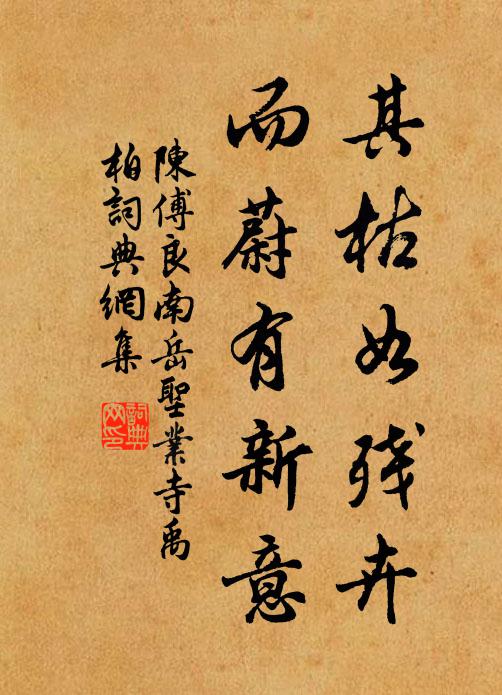 其枯如残卉
而蔚有新意
陳傅良南岳聖業寺禹
柏詞典網集
詞典
网印